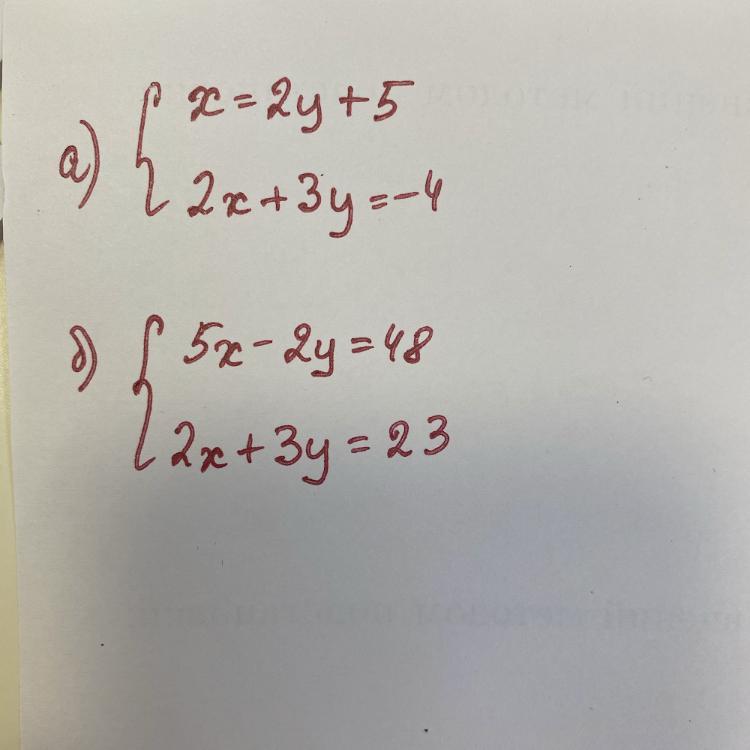 а) { x = 2y + 5
2x + 3y = -4
б) { 5x - 2y = 48
2x + 3y = 23